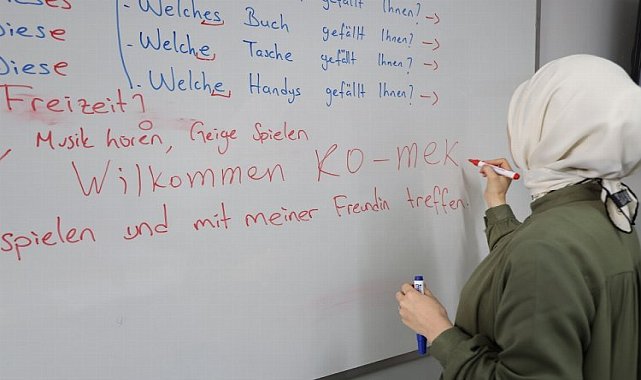 Dieses - Welches Buch gefällt Ihnen? →
Diese - Welche Tasche gefällt Ihnen? →
Diese - Welche Handys gefällt Ihnen? →
Freizeit?
Musik hören, Geige Spielen
Wilkommen KO-mek
spielen und mit meiner Freundin treffen.